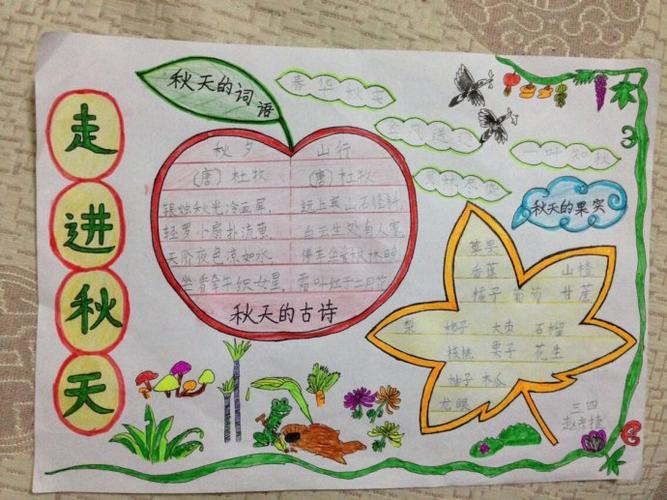 走进秋天
秋天的词语
春华秋实
金风送爽
一叶知秋
层林尽染
秋夕
(唐)杜牧
银烛秋光冷画屏,
轻罗小扇扑流萤,
天阶夜色凉如水,
坐看牵牛织女星,
山行
(唐)杜牧
远上寒山石径斜,
白云生处有人家,
停车坐爱枫林晚,
霜叶红于二月花
秋天的古诗
秋天的果实
苹果
香蕉 山楂
橘子 葡萄 甘蔗
梨 柿子 大枣 石榴
核桃 栗子 花生
柚子 木瓜
龙眼
三四